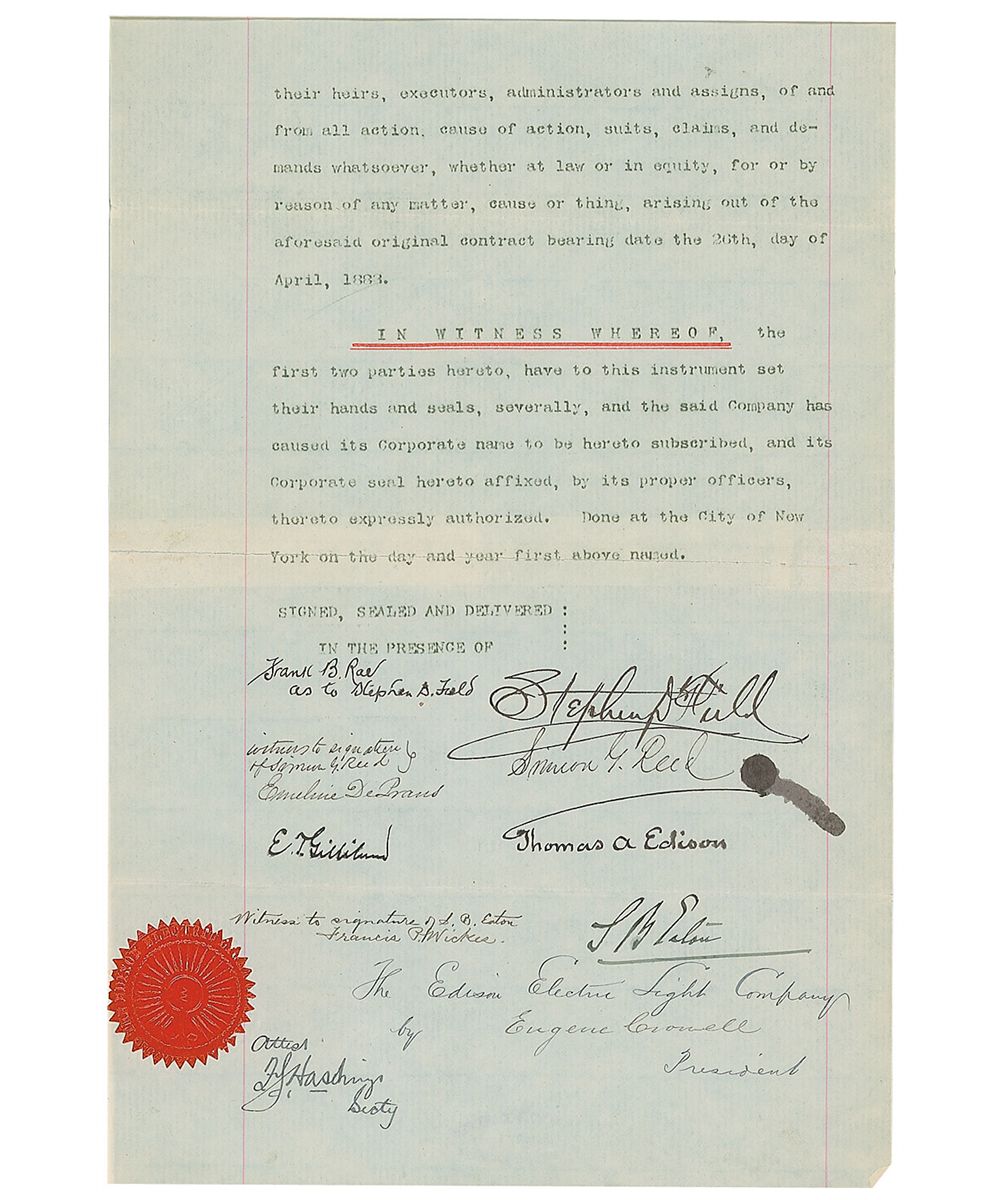 their heirs, executors, administrators and assigns, of and
from all action, cause of action, suits, claims, and de-
mands whatsoever, whether at law or in equity, for or by
reason of any matter, cause or thing, arising out of the
aforesaid original contract bearing date the 26th, day of
April, 1883.
IN WITNESS WHEREOF, the
first two parties hereto, have to this instrument set
their hands and seals, severally, and the said Company has
caused its Corporate name to be hereto subscribed, and its
Corporate seal hereto affixed, by its proper officers,
thereto expressly authorized. Done at the City of New
York on the day and year first above named.
SIGNED, SEALED AND DELIVERED :
IN THE PRESENCE OF :
Frank B. Rae
as to Stephen D. Field
Stephen D Field
witness to signature
of Simeon G. Reed
Simeon G. Reed
Emeline
E. T. Gilliland
Thomas A Edison
Witness to signature of S. B. Eaton
Francis P. Wickes.
S B Eaton
The Edison Electric Light Company
by Eugene Crowell
President
Attest
F S Hastings
Secty